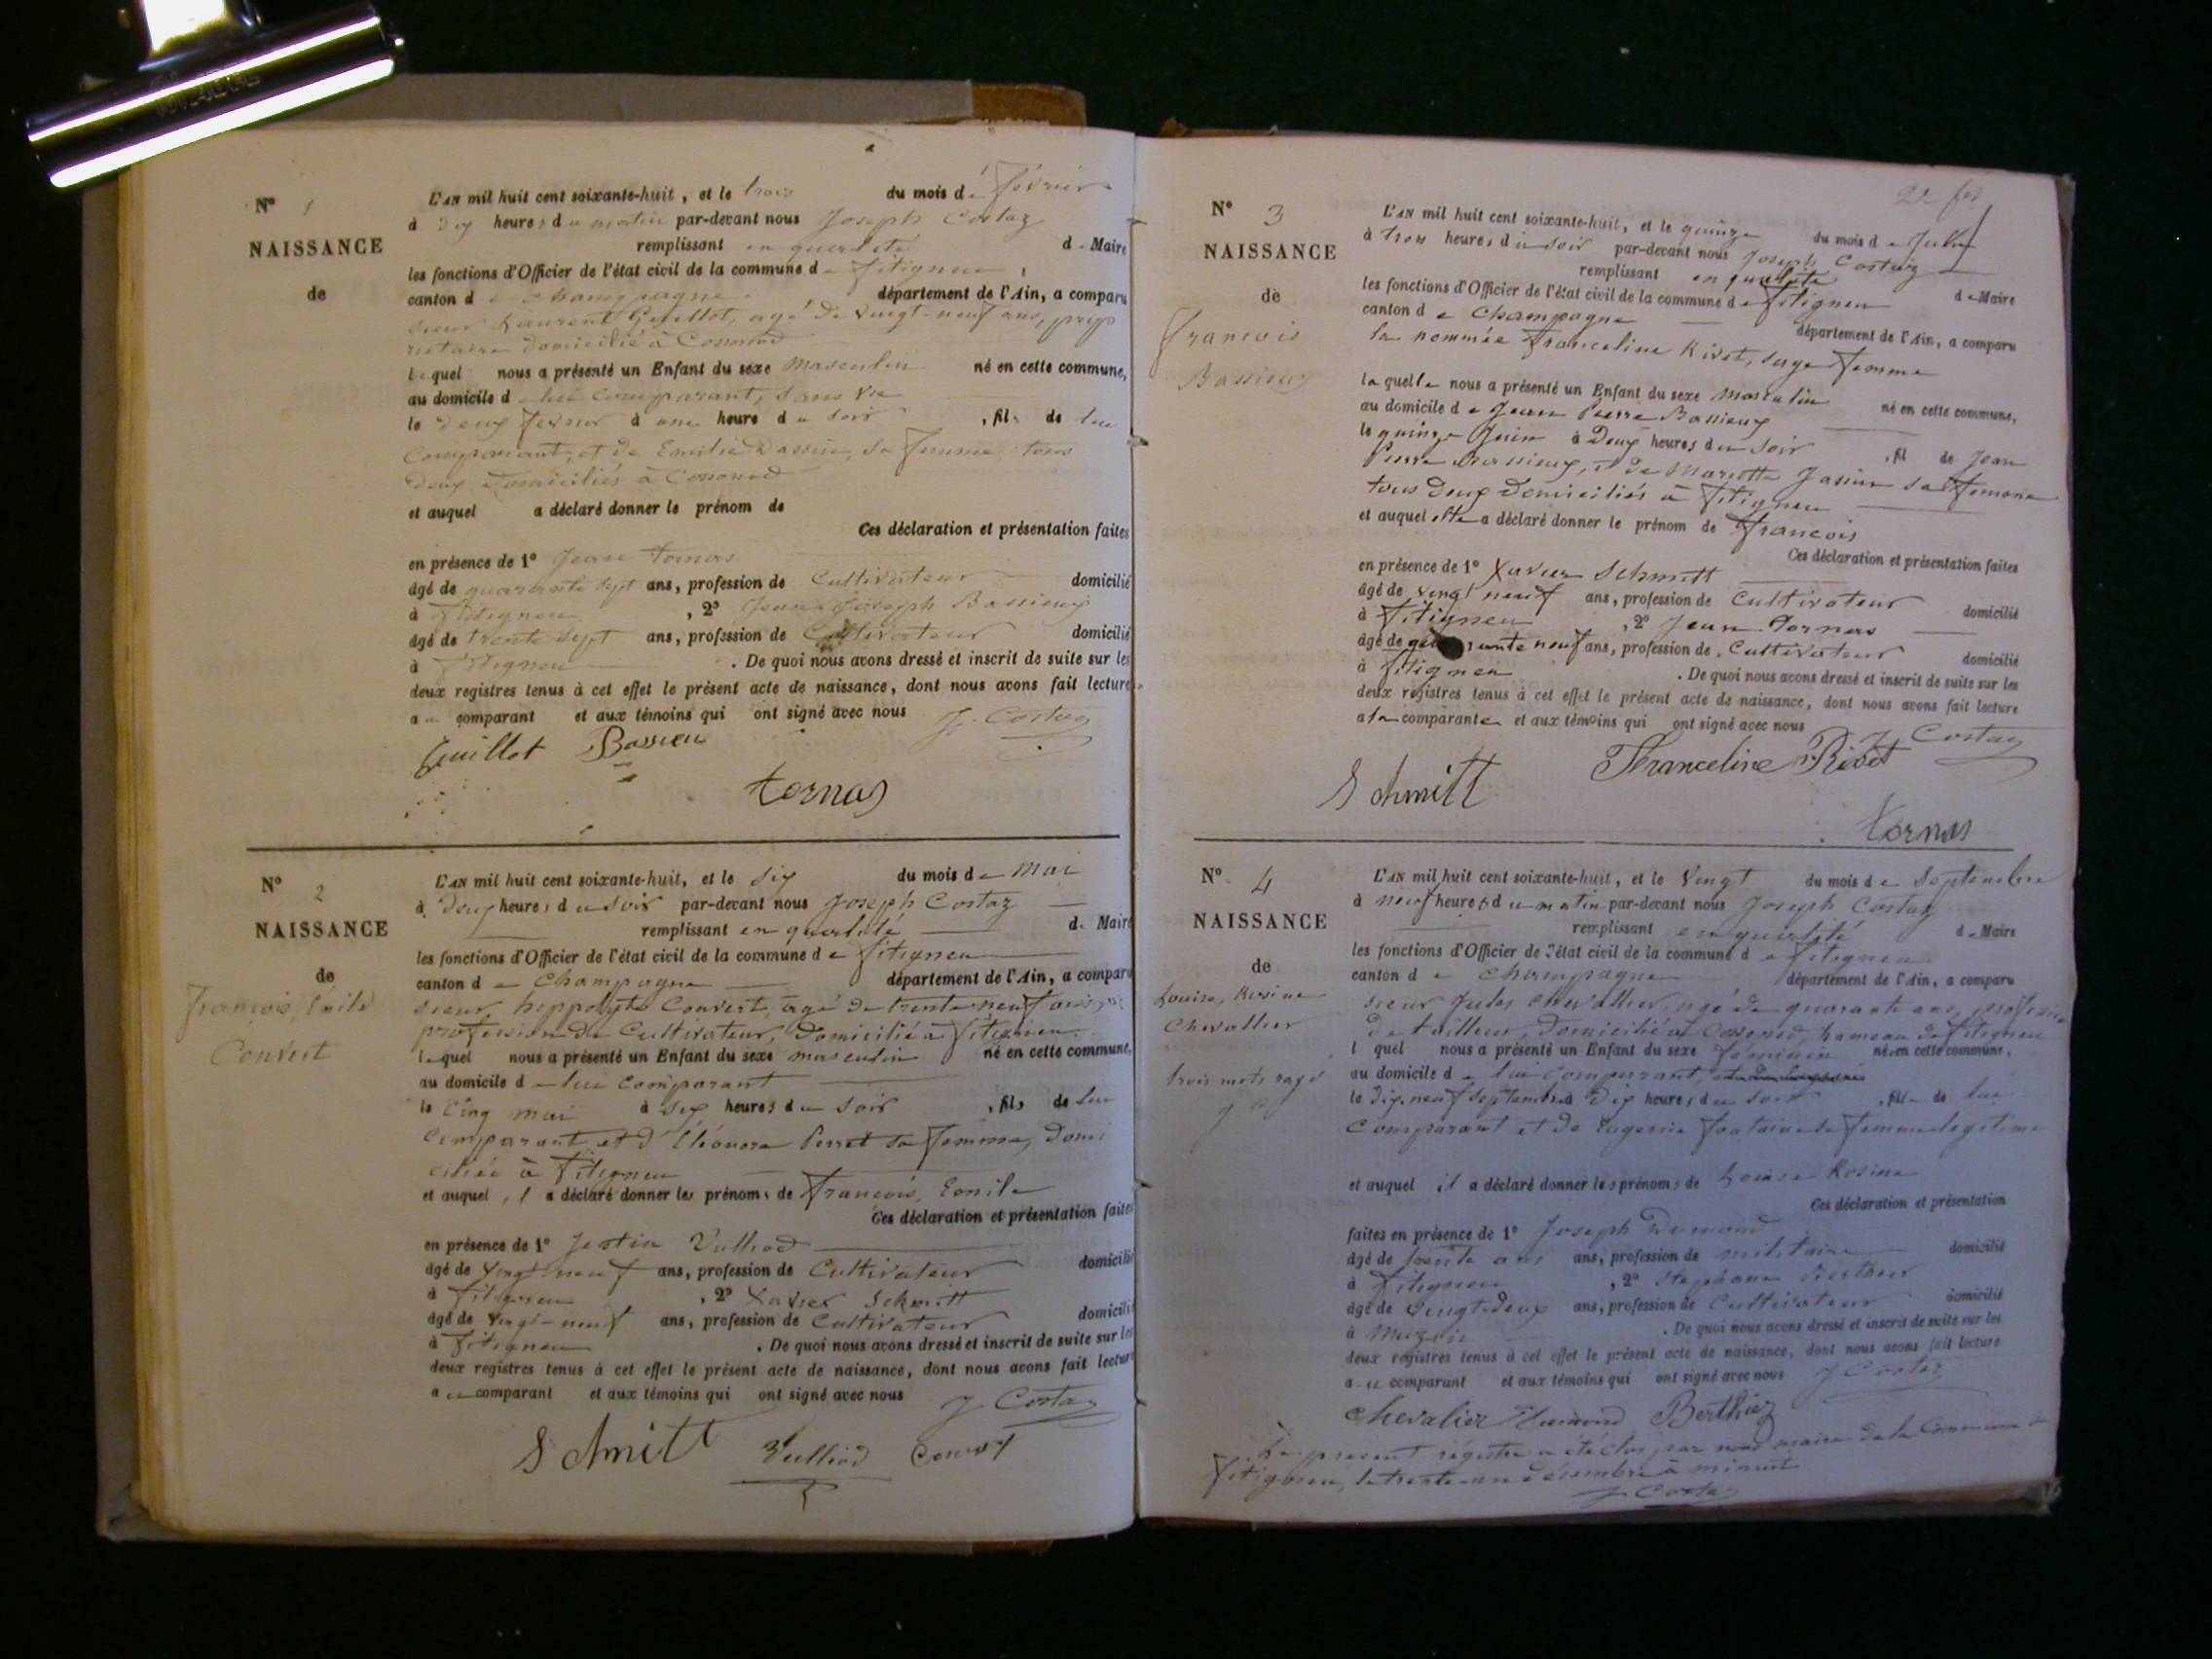 N° 1
NAISSANCE
de
L'AN mil huit cent soixante-huit, et le trois du mois de février
à dix heures du matin par-devant nous Joseph Costaz
remplissant en qualité de Maire
les fonctions d'Officier de l'état civil de la commune de fitignieu,
canton de champagne département de l'Ain, a comparu
sieur Laurent Guillot, agé de vingt-neuf ans, prop
riétaire domicilié à Cossonod
lequel nous a présenté un Enfant du sexe masculin né en cette commune,
au domicile de lui comparant, sans vie
le deux fevrier à une heure du soir, fils de lui
comparant, et de Emilie sa femme, tous
deux domiciliés à Cossonod
et auquel a déclaré donner le prénom de
Ces déclaration et présentation faites
en présence de 1° Jean tornas
âgé de quarante sept ans, profession de Cultivateur domicilié
à fitignieu, 2° Jean Joseph Bassieux
âgé de trente sept ans, profession de Cultivateur domicilié
à fitignieu. De quoi nous avons dressé et inscrit de suite sur les
deux registres tenus à cet effet le présent acte de naissance, dont nous avons fait lecture
au comparant et aux témoins qui ont signé avec nous J. Costaz
Guillot Bassieu
tornas
N° 2
NAISSANCE
de
françois, Emile
Convert
L'AN mil huit cent soixante-huit, et le six du mois de Mai
à deux heures du soir par-devant nous Joseph Costaz
remplissant en qualité de Maire
les fonctions d'Officier de l'état civil de la commune de fitignieu
canton de Champagne département de l'Ain, a comparu
sieur hyppolyte Convert, agé de trente neuf ans,
profession de Cultivateur, domicilié à fitignieu
lequel nous a présenté un Enfant du sexe masculin né en cette commune,
au domicile de lui comparant
le cinq mai à six heures du soir, fils de lui
comparant et d'Eléonore Perret sa femme, domi
ciliée à fitignieu
et auquel il a déclaré donner les prénoms de françois, Emile
Ces déclaration et présentation faites
en présence de 1° Justin Vulliod
âgé de vingt-neuf ans, profession de Cultivateur domicilié
à fitignieu, 2° Xavier Schmitt
âgé de vingt-neuf ans, profession de Cultivateur domicilié
à fitignieu. De quoi nous avons dressé et inscrit de suite sur les
deux registres tenus à cet effet le présent acte de naissance, dont nous avons fait lecture
au comparant et aux témoins qui ont signé avec nous J Costaz
Schmitt Vulliod Convert
N° 3
NAISSANCE
de
françois
Bassieux
L'AN mil huit cent soixante-huit, et le quinze du mois de Juin
à trois heures du soir par-devant nous Joseph Costaz
remplissant en qualité de Maire
les fonctions d'Officier de l'état civil de la commune de fitignieu
canton de Champagne département de l'Ain, a comparu
la nommée franceline Rivet, sage femme
laquelle nous a présenté un Enfant du sexe masculin né en cette commune,
au domicile de Jean Pierre Bassieux
le quinze Juin à Deux heures du soir, fil de Jean
Pierre Bassieux, et de Mariette sa femme
tous deux domiciliés à fitignieu
et auquel elle a déclaré donner le prénom de françois
Ces déclaration et présentation faites
en présence de 1° Xavier Schmitt
âgé de vingt neuf ans, profession de Cultivateur domicilié
à fitignieu, 2° Jean tornas
âgé de quarante neuf ans, profession de Cultivateur domicilié
à fitignieu. De quoi nous avons dressé et inscrit de suite sur les
deux registres tenus à cet effet le présent acte de naissance, dont nous avons fait lecture
a la comparante et aux témoins qui ont signé avec nous J Costaz
Schmitt Franceline Rivet
tornas
N° 4
NAISSANCE
de
Louise, Rosine
Chevallier
trois mots rayé
J C
L'AN mil huit cent soixante-huit, et le vingt du mois de septembre
à neuf heures du matin par-devant nous Joseph Costaz
remplissant en qualité de Maire
les fonctions d'Officier de l'état civil de la commune de fitignieu
canton de Champagne département de l'Ain, a comparu
sieur Jules chevallier, agé de quarante ans, profession
de tailleur, domicilié à Cossonod, hameau de fitignieu
l quel nous a présenté un Enfant du sexe feminin né en cette commune,
au domicile de lui comparant,
le dix neuf septembre à dix heures du soir, fille de lui
comparant et de Eugenie fontaine sa femme legitime
et auquel il a déclaré donner les prénoms de Louise Rosine
Ces déclaration et présentation
faites en présence de 1° Joseph Dumond
âgé de trente ans ans, profession de militaire domicilié
à fitignieu, 2° Stephane Berthier
âgé de vingt-deux ans, profession de Cultivateur domicilié
à. De quoi nous avons dressé et inscrit de suite sur les
deux registres tenus à cet effet le présent acte de naissance, dont nous avons fait lecture
au comparant et aux témoins qui ont signé avec nous J Costaz
chevalier Dumond Berthier
Le present régistre a été clos par nous maire de la Commune de
fitignieu, le trente-un décembre à minuit
J Costaz